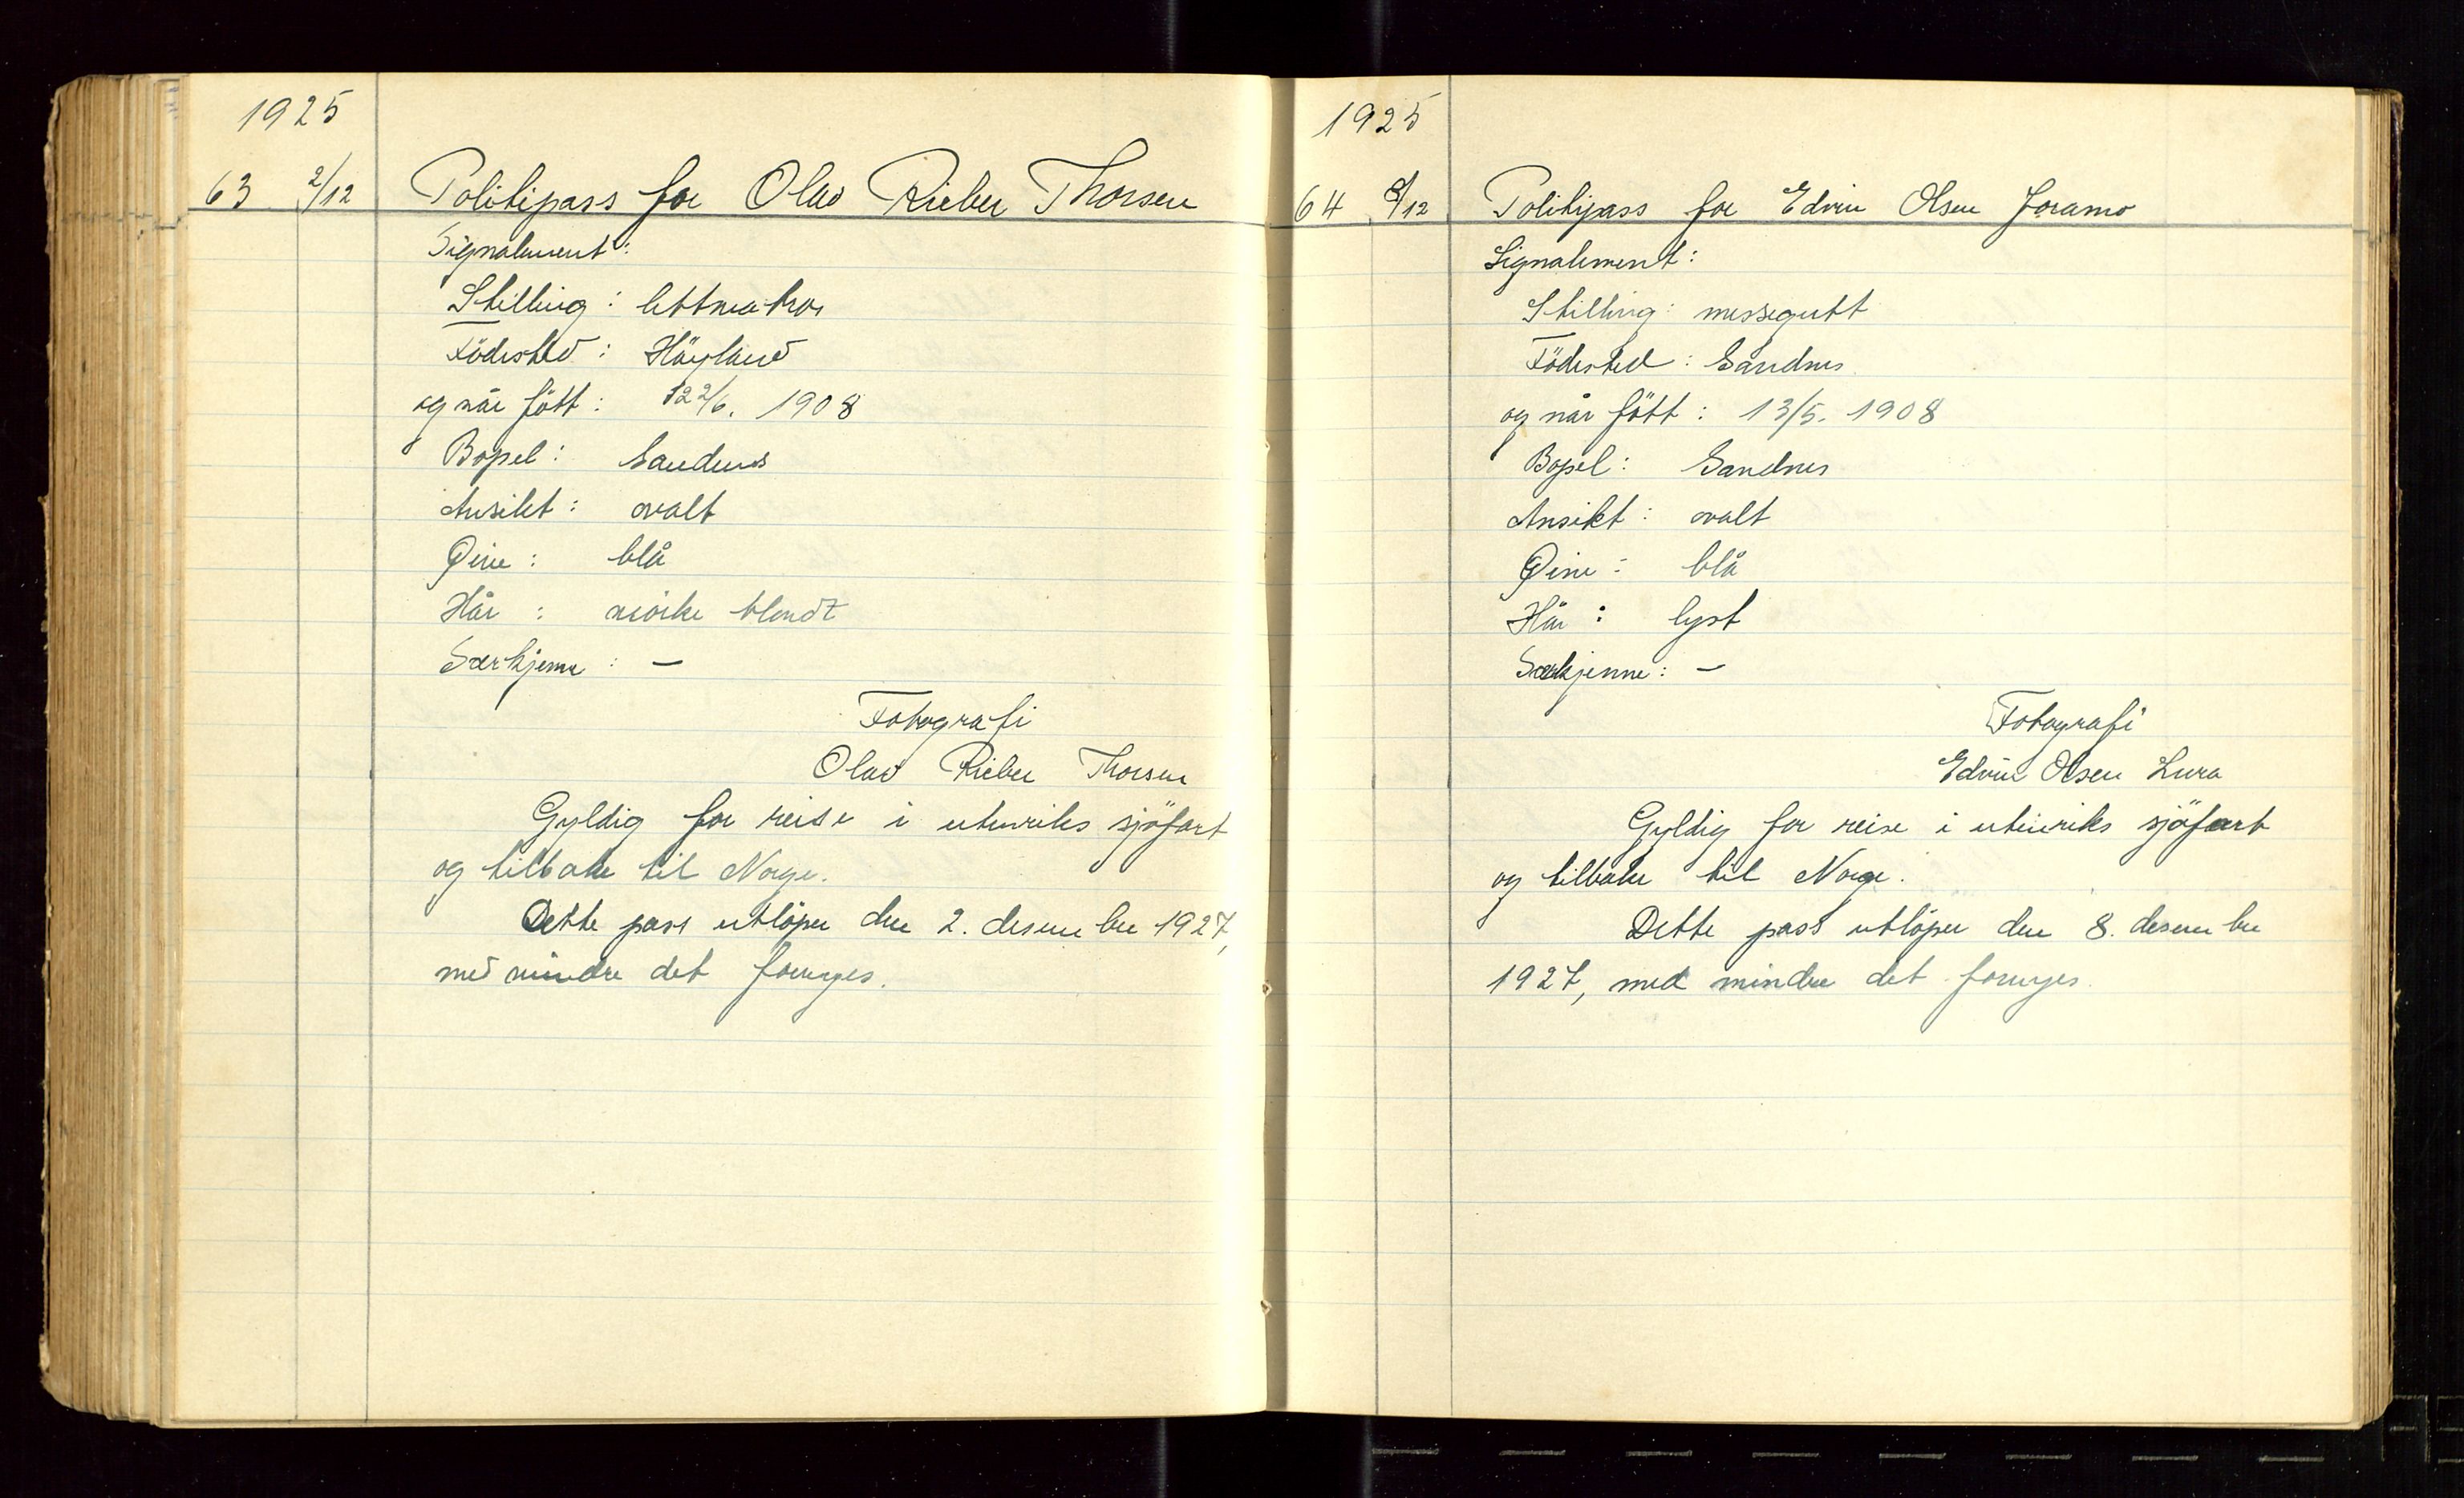 1925
63 2/12 Politipass for Olav Rieber Thorsen
Signalement:
Stilling: lettmatros
Födested: Höyland
og når fött: 22/6. 1908
Bopel: Sandnes
Ansikt: ovalt
Øine: blå
Hår: mörke blondt
Særkjenne: —
Fotografi
Olav Rieber Thorsen
Gyldig for reise i utenriks sjöfart
og tilbake til Norge.
Dette pass utlöper den 2. desember 1927,
med mindre det fornyes.
1925
64 8/12 Politipass for Edvin Olsen Joramo
Signalement:
Stilling: messegutt
Födested: Sandnes
og når fött: 13/5. 1908
Bopel: Sandnes
Ansikt: ovalt
Øine: blå
Hår: lyst
Særkjenne: —
Fotografi
Edvin Olsen Lura
Gyldig for reise i utenriks sjöfart
og tilbake til Norge.
Dette pass utlöper den 8. desember
1927, med mindre det fornyes.